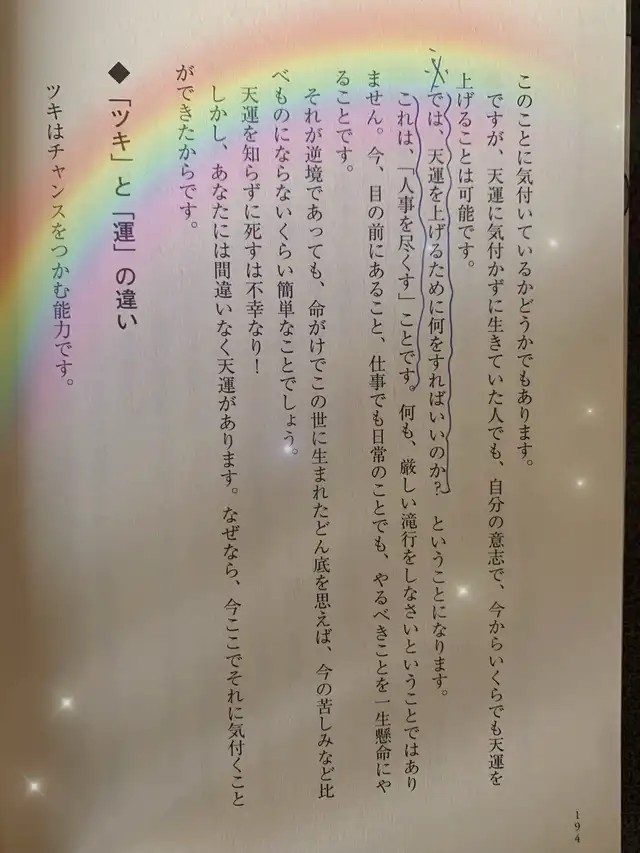 このことに気付いているかどうかでもあります。
ですが、天運に気付かずに生きていた人でも、自分の意志で、今からいくらでも天運を
上げることは可能です。
では、天運を上げるために何をすればいいのか? ということになります。
これは、「人事を尽くす」ことです。何も、厳しい滝行をしなさいということではあり
ません。今、目の前にあること、仕事でも日常のことでも、やるべきことを一生懸命にや
ることです。
それが逆境であっても、命がけでこの世に生まれたどん底を思えば、今の苦しみなど比
べものにならないくらい簡単なことでしょう。
天運を知らずに死すは不幸なり!
しかし、あなたには間違いなく天運があります。なぜなら、今ここでそれに気付くこと
ができたからです。
◆「ツキ」と「運」の違い
ツキはチャンスをつかむ能力です。
194